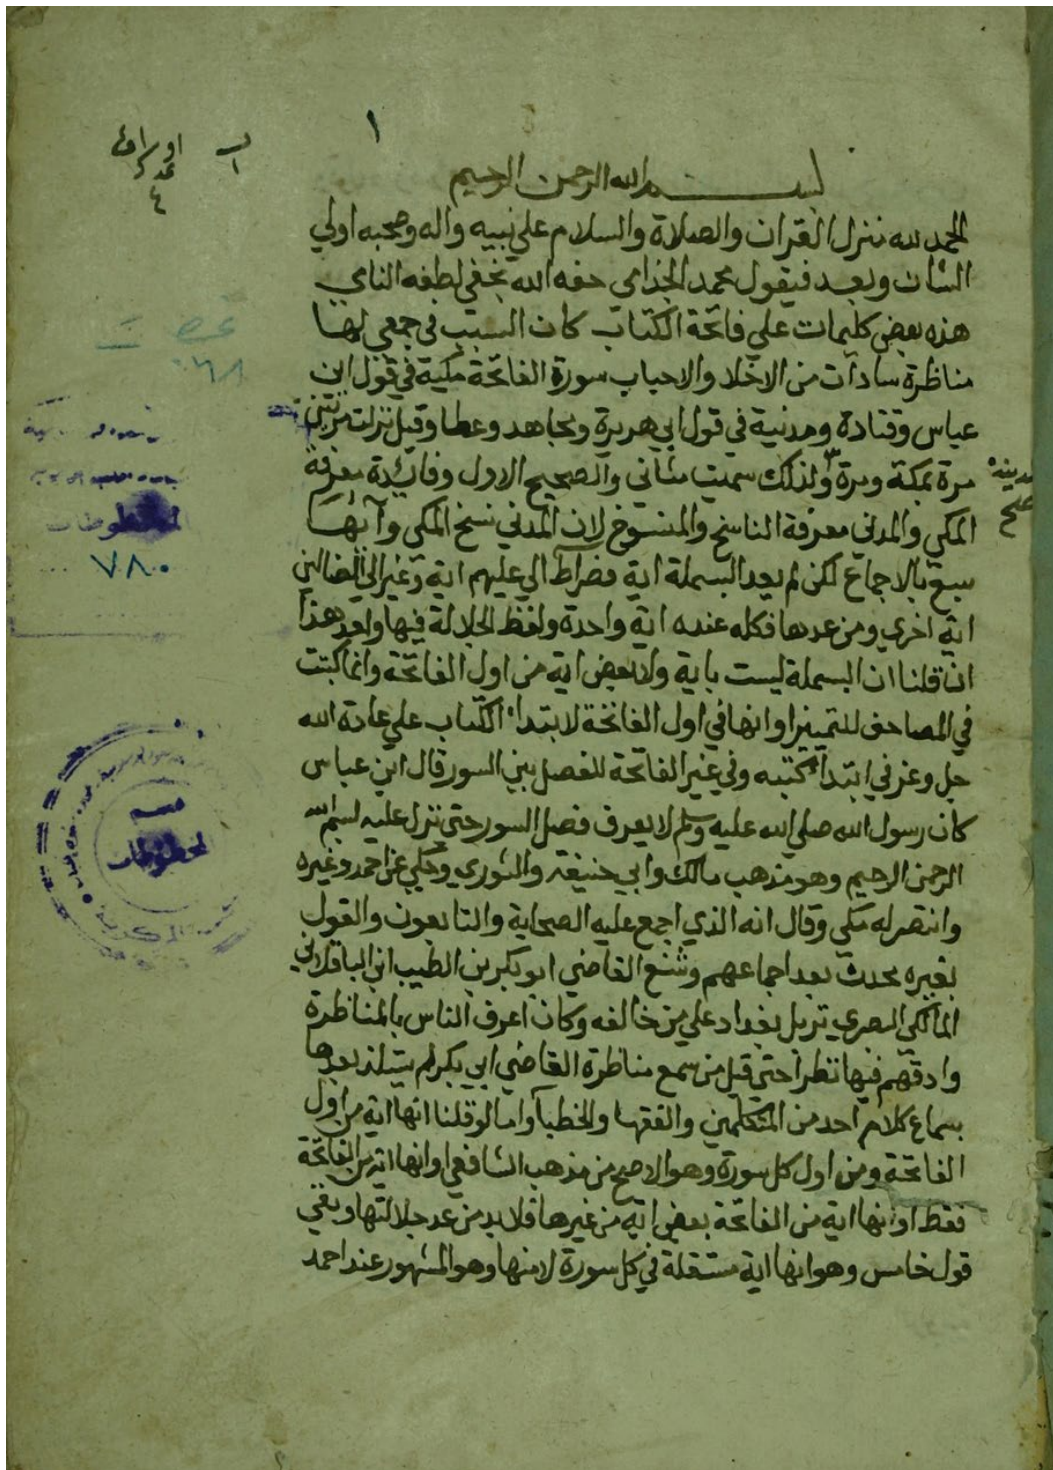 ١
اوراق
عدد
٤
بسم الله الرحمن الرحيم
الحمد لله منزل القران والصلاة والسلام علي نبيه واله وصحبه اولي
الشان وبعد فيقول محمد الجذامى حفه الله بخفي لطفه النامى
هذه بعض كليمات علي فاتحة الكتاب كان السبب في جمعي لها
مناظرة سادات من الاخلا والاحباب سورة الفاتحة مكية في قول ابن
عباس وقتادة ومدنية في قول ابي هريرة ومجاهد وعطا وقيل نزلت مرتين
مرة بمكة ومرة ولذلك سميت مثانى والصحيح الاول وفائدة معرفة
بمدينة
صح
المكي والمدنى معرفة الناسخ والمنسوخ لان المدنى نسخ المكى وآيها
سبع بالاجماع لكن لم يعد البسملة اية فصراط الي عليهم اية وغير الي الضالين
اية اخري ومن عدها فكله عنده اية واحدة ولفظ الجلالة فيها واحد هذا
ان قلنا ان البسملة ليست باية ولا بعض اية من اول الفاتحة وانما كتبت
في المصاحف للتمييز او انها في اول الفاتحة لابتداء الكتاب علي عادة الله
جل وعز في ابتداء كتبه وفي غير الفاتحة للفصل بين السور قال ابن عباس
كان رسول الله صلي الله عليه وسلم لا يعرف فصل السور حتى تنزل عليه بسم الله
الرحمن الرحيم وهو مذهب مالك وابي حنيفة والثوري وحكي عن احمد وغيره
وانتصر له مكي وقال انه الذي اجمع عليه الصحابة والتابعون والقول
بغيره محدث بعد اجماعهم وشنع القاضي ابو بكر بن الطيب ابن الباقلاني
المالكي البصري نزيل بغداد علي من خالفه وكان اعرف الناس بالمناظرة
وادقهم فيها نظرا حتى قيل من سمع مناظرة القاضي ابي بكر لم يتلذذ بعدها
بسماع كلام احد من المتكلمين والفقها والخطبا واما لو قلنا انها اية من اول
الفاتحة ومن اول كل سورة وهو الاصح من مذهب الشافعي او انها اية من الفاتحة
فقط او انها اية من الفاتحة بعض اية من غيرها فلا بد من عد جلالتها وبقي
قول خامس وهو انها اية مستقلة في كل سورة لا منها وهو المشهور عند احمد
المخطوطات
٧٨٠
قسم
المخطوطات